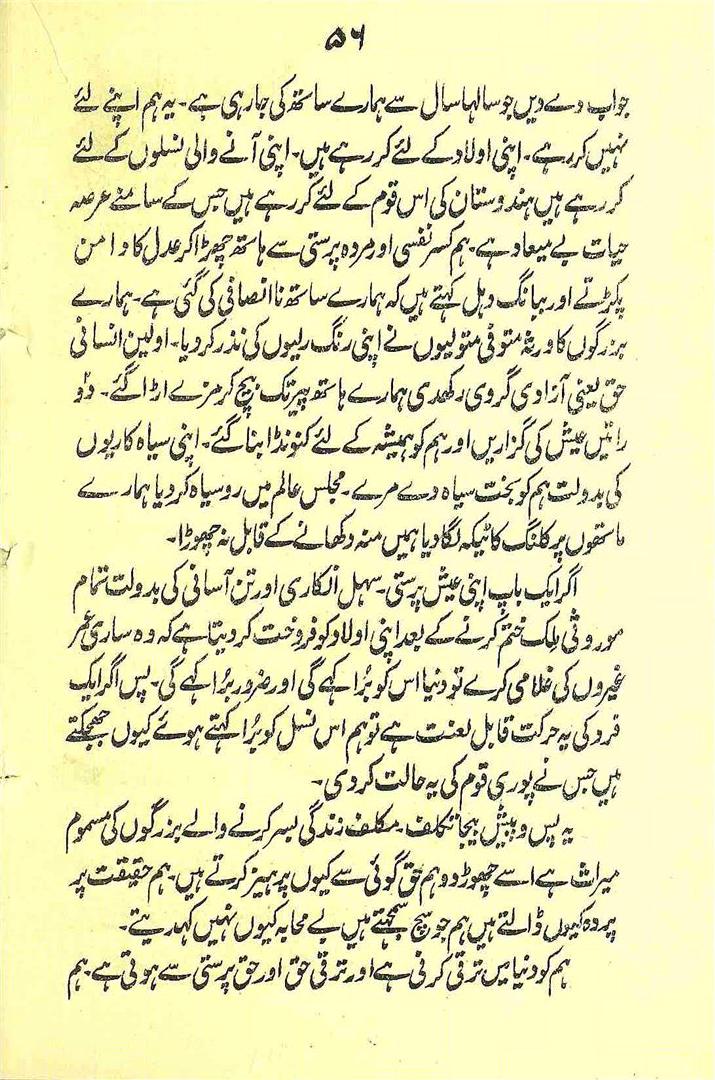 ۵۶
جواب دے دیں جو سالہا سال سے ہمارے ساتھ کی جارہی ہے۔ یہ ہم اپنے لئے
نہیں کررہے۔ اپنی اولاد کے لئے کررہے ہیں۔ اپنی آنے والی نسلوں کے لئے
کررہے ہیں ہندوستان کی اس قوم کے لئے کررہے ہیں جس کے سامنے عرصہ
حیات بے میعاد ہے۔ ہم کسر نفسی اور مردہ پرستی سے ہاتھ چھڑا کر عدل کا دامن
پکڑتے اور ببانگ دہل کہتے ہیں کہ ہمارے ساتھ ناانصافی کی گئی ہے۔ ہمارے
بزرگوں کا ورثہ متوفی متولیوں نے اپنی رنگ رلیوں کی نذر کردیا۔ اولین انسانی
حق یعنی آزادی گروی رکھدی ہمارے ہاتھ پیر تک بیچ کر مزے اڑا گئے۔ دو
راتیں عیش کی گزاریں اور ہم کو ہمیشہ کے لئے کنونڈا بنا گئے۔ اپنی سیاہ کاریوں
کی بدولت ہم کو بخت سیاہ دے مرے۔ مجلس عالم میں روسیاہ کردیا ہمارے
ماتھوں پر کلنگ کا ٹیکہ لگا دیا ہمیں منہ دکھانے کے قابل نہ چھوڑا۔
اگر ایک باپ اپنی عیش پرستی۔ سہل انکاری اور تن آسانی کی بدولت تمام
موروثی ملک ختم کرنے کے بعد اپنی اولاد کو فروخت کردیتا ہے کہ وہ ساری عمر
غیروں کی غلامی کرے تو دنیا اس کو بُرا کہے گی اور ضرور بُرا کہے گی۔ پس اگر ایک
فرد کی یہ حرکت قابل لعنت ہے تو ہم اس نسل کو بُرا کہتے ہوئے کیوں جھجکتے
ہیں جس نے پوری قوم کی یہ حالت کردی۔
یہ پس و پیش بیجا تکلف۔ مکلف زندگی بسر کرنے والے بزرگوں کی مسموم
میراث ہے اسے چھوڑ دو ہم حق گوئی سے کیوں پرہیز کرتے ہیں۔ ہم حقیقت پر
پردہ کیوں ڈالتے ہیں ہم جو سچ سمجھتے ہیں بے محابہ کیوں نہیں کہدیتے۔
ہم کو دنیا میں ترقی کرنی ہے اور ترقی حق اور حق پرستی سے ہوتی ہے۔ ہم